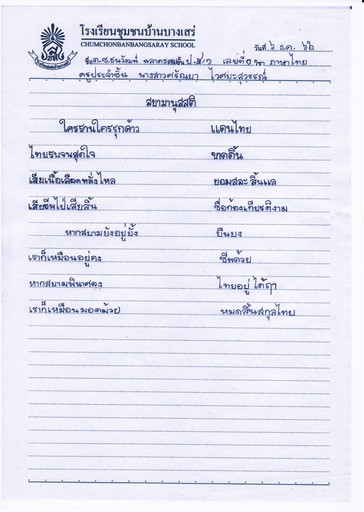 โรงเรียนชุมชนบ้านบางเสร่
CHUMCHONBANBANGSARAY SCHOOL
วันที่ ๖ ธ.ค. ๖๒
ป.๕/๑ เลขที่ ๑ วิชา ภาษาไทย
ครูประจำชั้น นางสาวศรัณยา ไวศยะสุวรรณ์
สยามานุสสติ
ใครรานใครรุกด้าว แดนไทย
ไทยรบจนสุดใจ ขาดดิ้น
เสียเนื้อเลือดหลั่งไหล ยอมสละ สิ้นแล
เสียชีพไป่เสียสิ้น ชื่อก้องเกียรติงาม
หากสยามยังอยู่ยั้ง ยืนยง
เราก็เหมือนอยู่คง ชีพด้วย
หากสยามพินาศลง ไทยอยู่ ได้ฤา
เราก็เหมือนมอดม้วย หมดสิ้นสกุลไทย